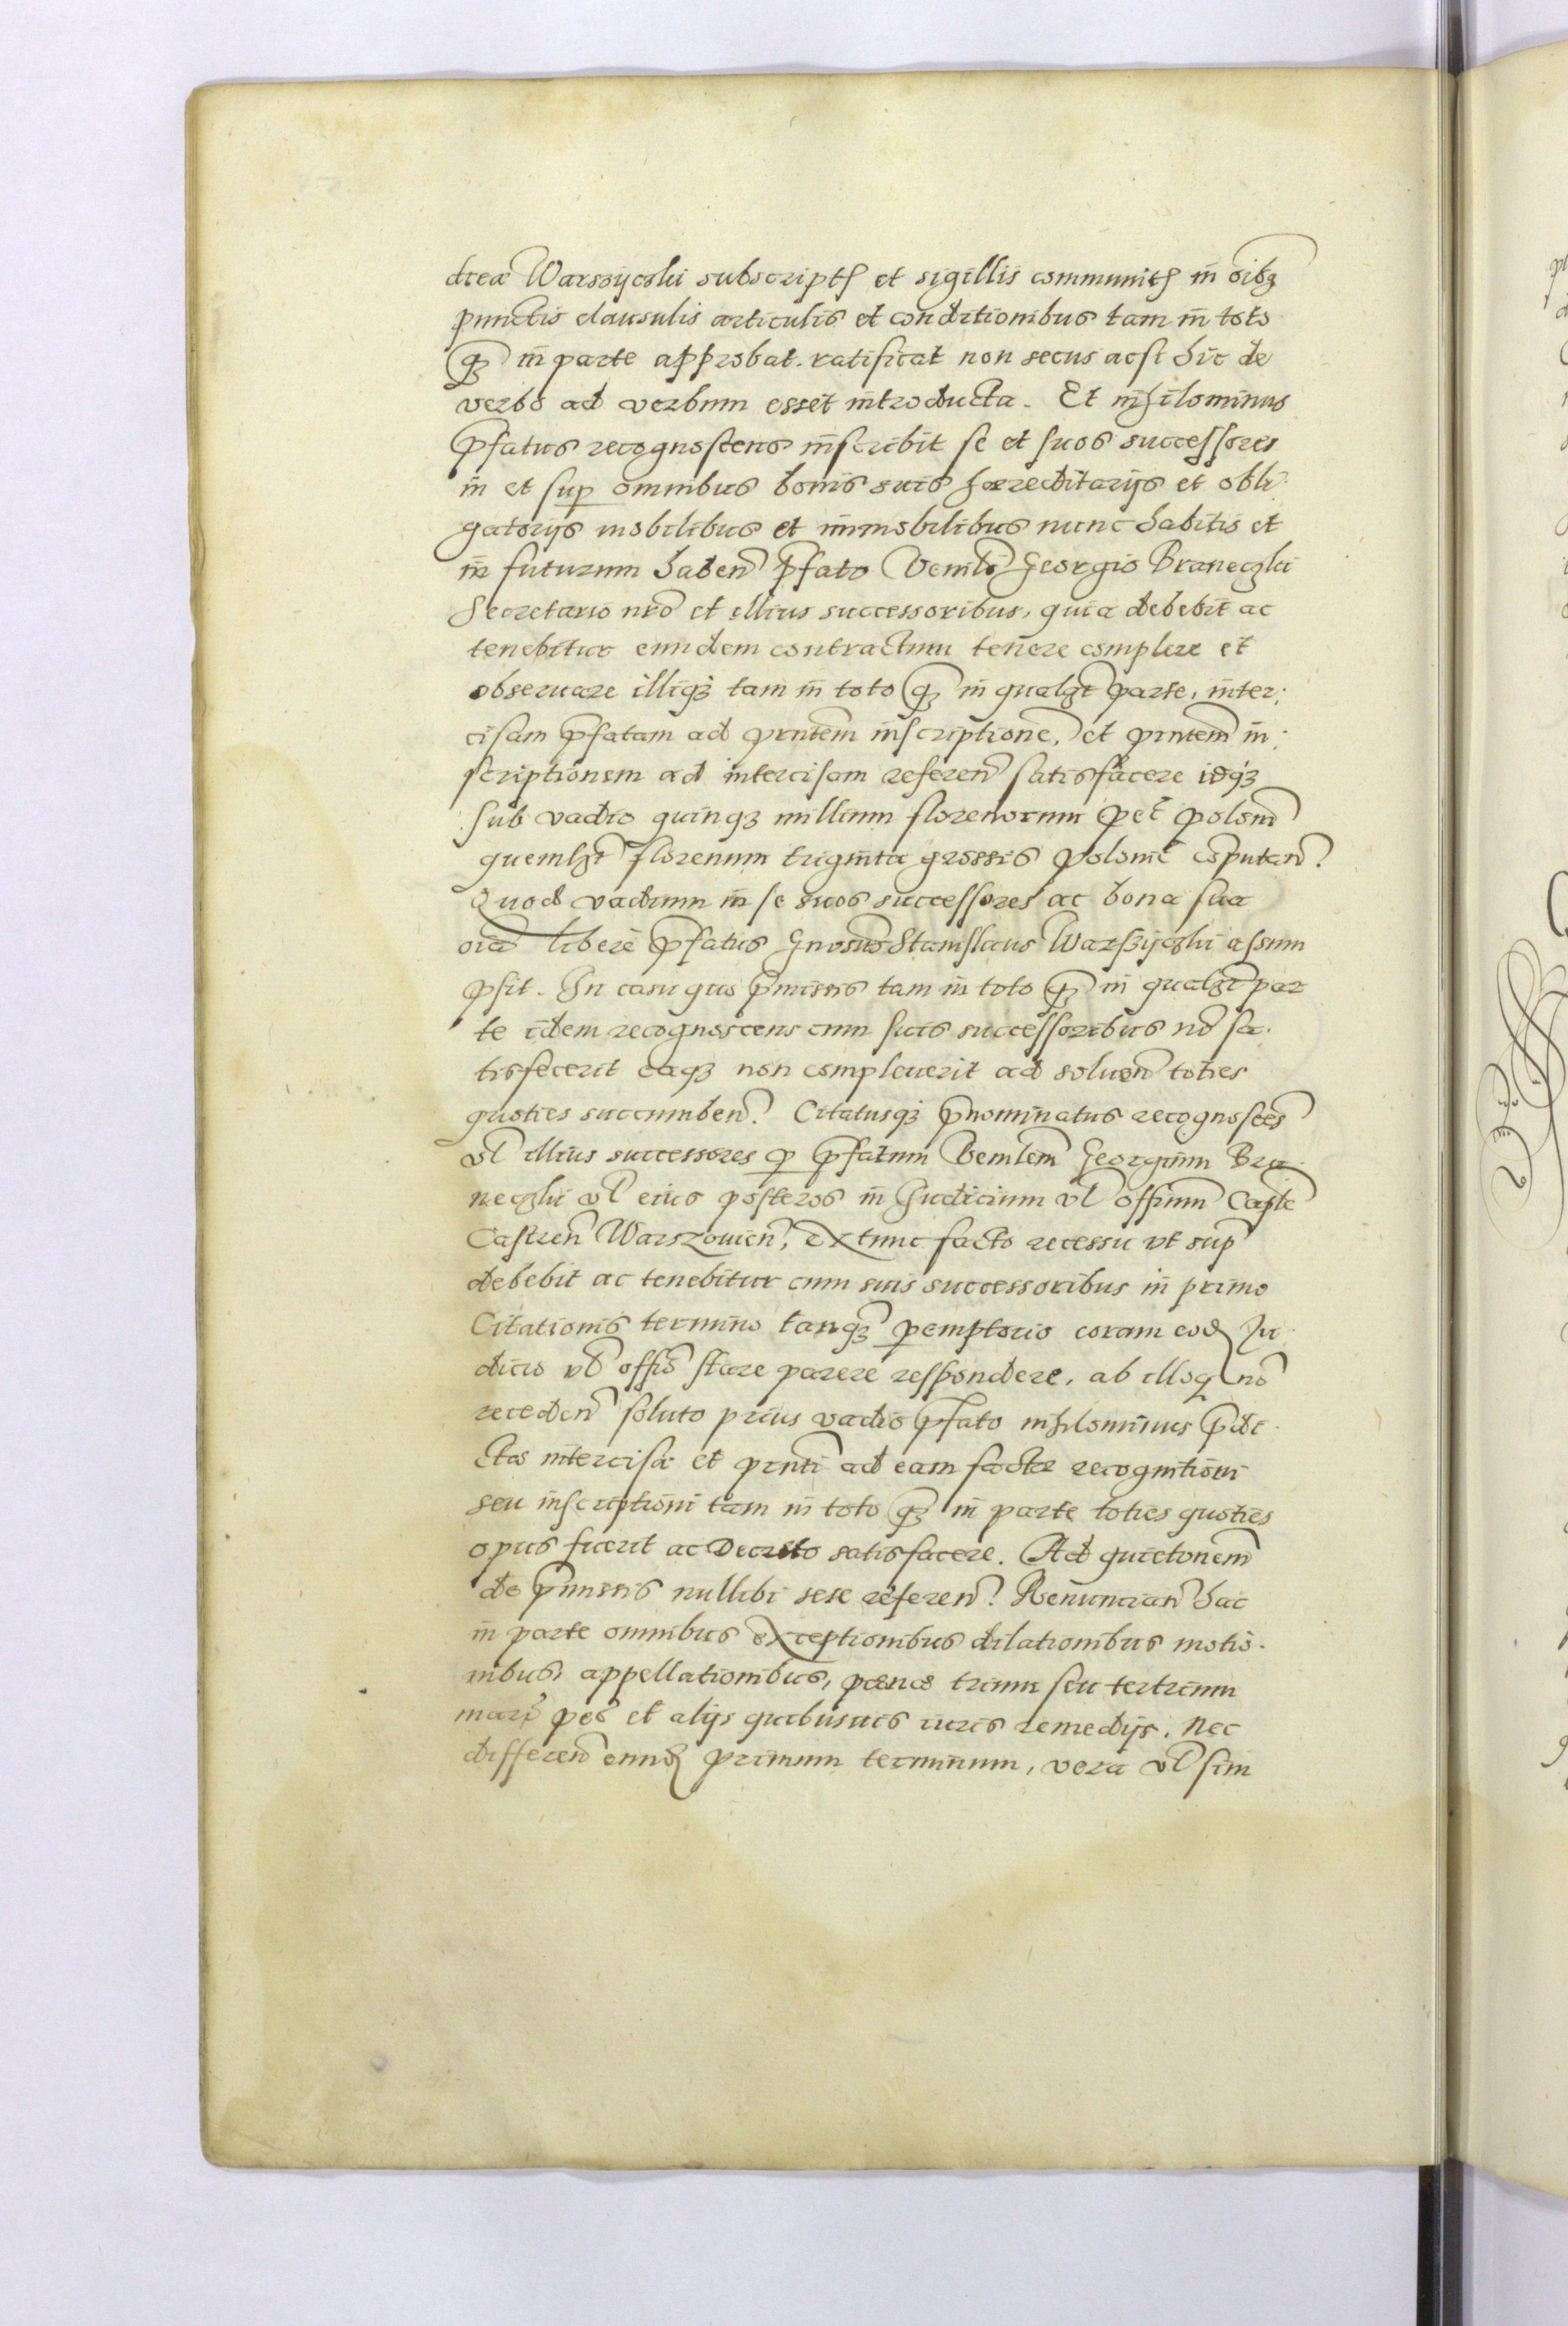 dreæ Warszyczki subscriptꝭ et sigillis communitꝭ in oĩbꝫ
punctis clausulis articulis et conditionibus tam in toto
qꝫ in parte approbat. ratificat non secus acsi hic de
verbo ad verbum esset introducta. Et nihilominus
p̃fatus recognoscens inscribit se et suos successores
in et suꝑ omnibus bonis suis hæreditarijs et obli
gatorijs mobilibus et immobilibus nunc habitis et
in futurum haben̄ p̃fato Venrl̃i Georgio Braneczki
Secretario nr̃o et illius successoribus, quia debebit ac
tenebitur eundem contractum tenere complere et
obseruare illiqꝫ tam in toto qꝫ in qualꝫt parte, inter:
cisam p̃fatam ad pñtem inscriptionẽ, et pñtem in:
scriptionem ad intercisam referen̄ satisfacere idqꝫ
sub vadio quinqꝫ millium florenorum pec̄ polon̄
quemlꝫt florenum triginta grossis polonic̄ cõputan̄.
Quod vadium in se suos successores ac bona sua
oĩa liberè p̃fatus Gnosus Stanislaus Warszyczki assum
psit. In casu quo p̃missis tam in toto qꝫ in qualꝫt par
te idem recognoscens cum suis successoribus nõ sa:
tisfecerit eaqꝫ non compleuerit ad soluen̄ toties
quoties succumben̄. Citatusqꝫ p̃nominatus recognoscẽs
vl̃ illius successores ꝑ p̃fatum Venrlem Georgium Bra
neczki vl̃ eius posteros in Iudicium vl̃ offium Capl̃e
Castren̄ Warszouien̄, extunc facto recessu vt sup̃
debebit ac tenebitur cum suis successoribus in primo
Citationis termino tanqꝫ ꝑemptorio coram eod̃ Iu
dicio vl̃ offiõ stare parere respondere, ab illoqꝫ nõ
receden̄ soluto prius vadio p̃fato nihilominus p̃di
ctæ intercisæ et pñti ad eam factæ recognitioni
seu inscriptioni tam in toto qꝫ in parte toties quoties
opus fuerit ac Decreto satisfacere. Ad quictonem̃
de p̃missis nullibi sese referen̄. Renuncian̄ hac
in parte omnibus exceptionibus dilationibus motio:
nibus, appellationibus, pœnæ trium seu tertrium
mar̃ pec̄ et alijs quibusuis iuris remedijs. Nec
differen̄ eund̃ primum terminum, vera vl̃ sim